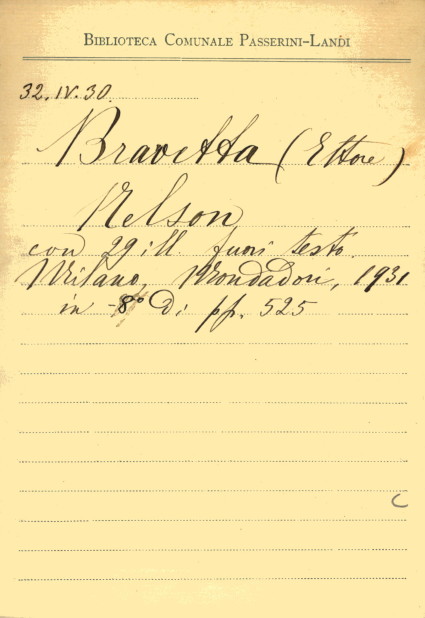 BIBLIOTECA COMUNALE PASSERINI-LANDI
32.IV.30.
Bravetta (Ettore)
Nelson
con 29 ill. fuori testo.
Milano, Mondadori, 1931
in -8° di pp. 525
C